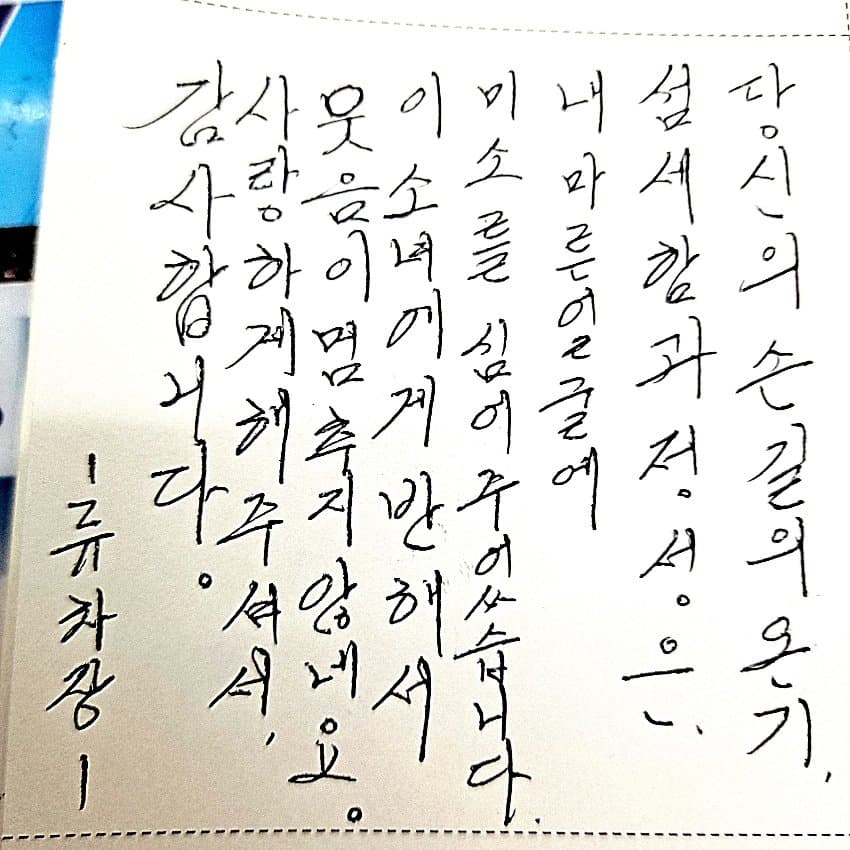 당신의 손길의 온기,
섬세함과 정성은.
내 마른 얼굴에
미소를 심어주었습니다.
이 소녀에게 반해서
웃음이 멈추지 않네요.
사랑하게 해주셔서,
감사합니다.
- 류차장 -